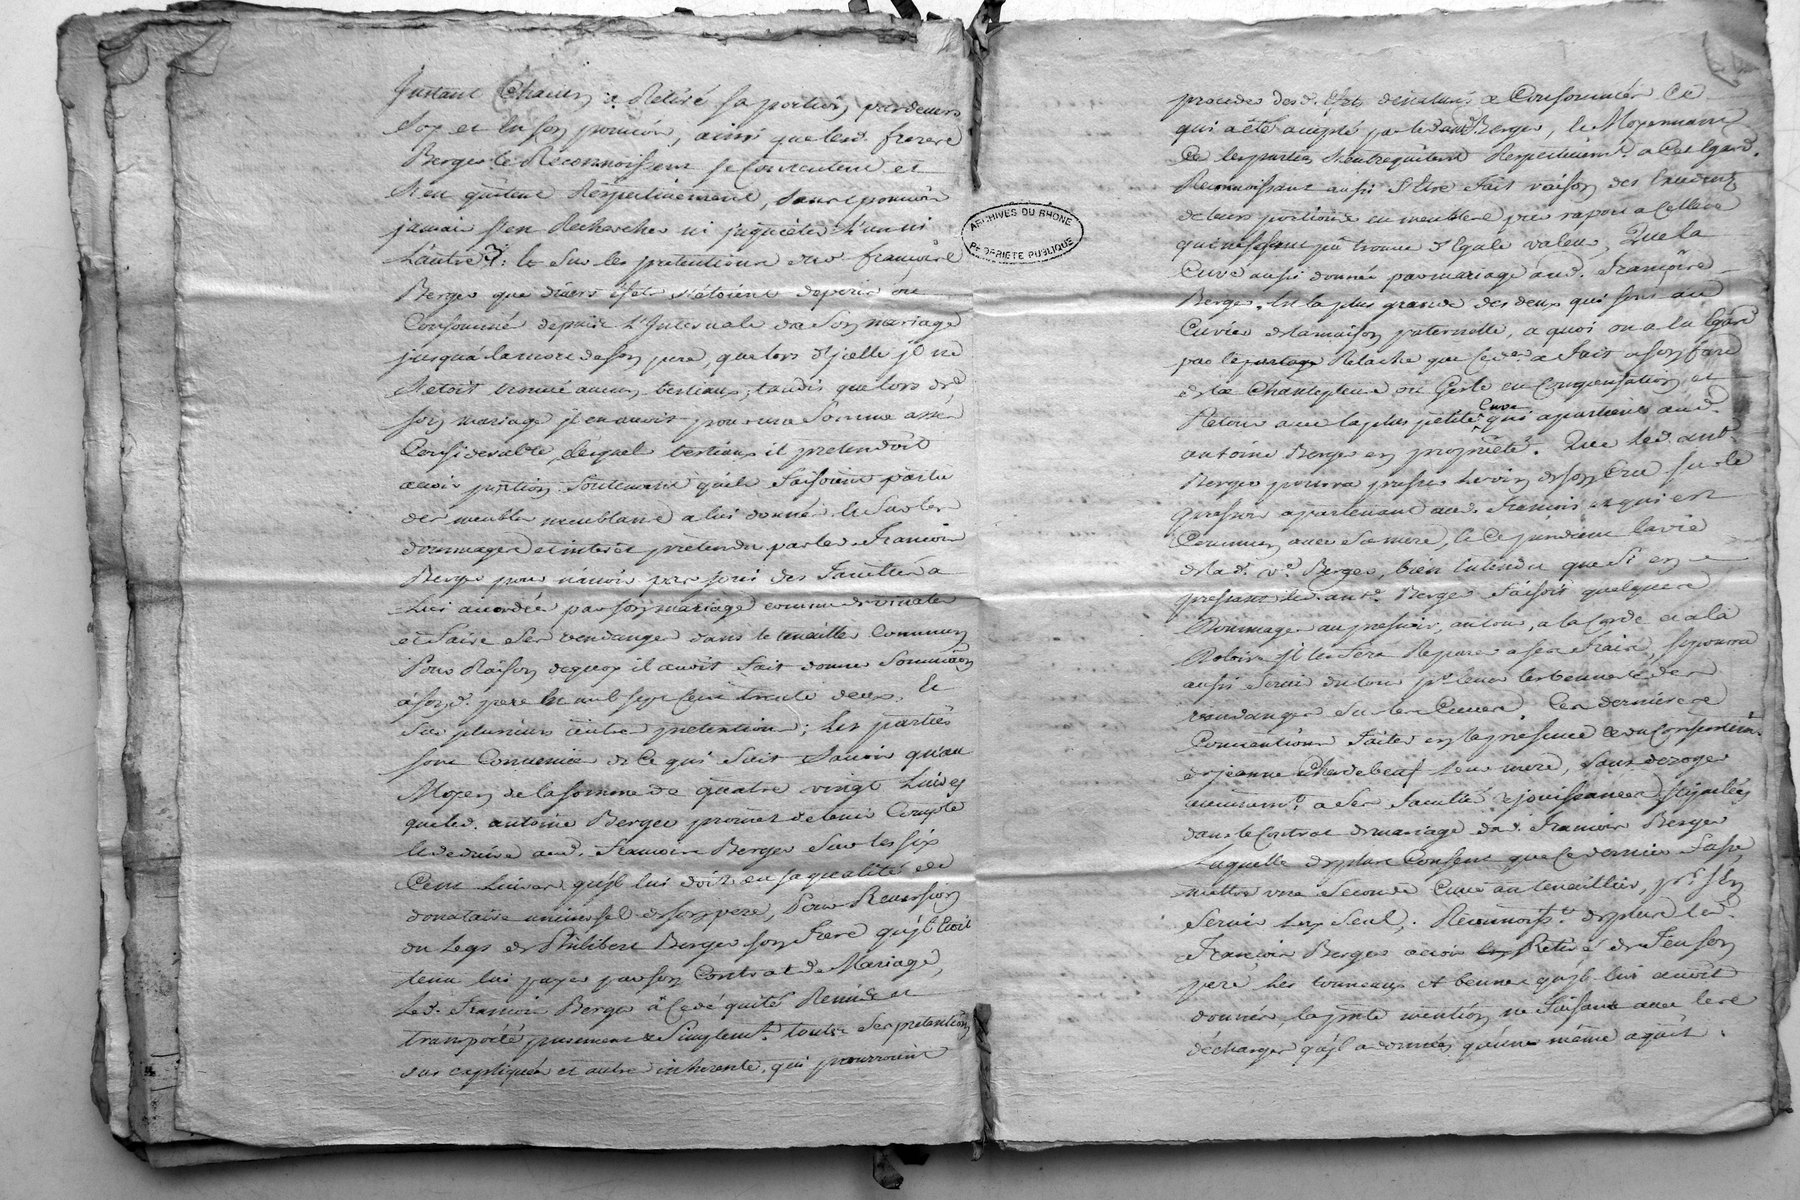 Instant Chacun a Retiré sa portion pardevers
soy et en son pouvoir, ainsi que lesd. freres
Berger le Reconnoissent se Contentent et
s'en quittent Respectivement, sans pouvoir
jamais s'en Rechercher ni inquieter l'un ni
L'autre 3: le sur les pretentions dud. françois
Berger que divers efets s'étoient deperis ou
Consommé depuis L'Intervale de son mariage
jusqu'a la mort de son pere, que lors d'jcelle jl ne
s'etoit trouvé aucun bestiaux, tandis que lors de
son mariage jl en avoit pour une somme assés
Considerable, desquels bestiaux il pretendoit
avoir portion soutenant qu'ils faisoient partie
des meubles meublant a lui donnés. le sur les
dommages et interêt prétendu par led. François
Berger pour n'avoir pas joui des facultés a
Lui accordées par son mariage comme de
et faire ses vendanges dans le tenaillier Commun
Pour Raison de quoy il avoit fait donner sommation
a son d. pere le mil sept cent trente deux. Et
sur plusieurs autres pretentions; Les parties
sont Convenues de ce qui suit savoir qu'au
Moyen de la somme de quatre vingt Livres
que led. antoine Berger promet de tenir Compte
et deduire aud. François Berger sur les six
Cent Livres qu'jl lui doit en sa qualité de
donataire universel de son pere, Pour
du Legs de Philibert Berger son frere qu'jl Etoit
tenu lui payer par son Contrat de Mariage,
Led. François Berger a Cedé quité Remis et
transporté purement & simplemt. toutes ses pretentions
sus expliquées et autres inherentes, qui pourroient
ARCHIVES DU RHONE
PROPRIETE PUBLIQUE
proceder desd. efets dénaturés & Consommés Ce
qui a été accepté par led. ant. Berger, le Moyennant
Ce les parties s'entrequitent Respectivemt. a Cet Egard.
Reconnoissant aussi s'être fait raison des
de leurs portions en meubles par raport a celles
qui ne se sont pû trouver d'Egale valeur, Que la
Cuve aussi donnée par mariage aud. François
Berger, Est la plus grande des deux qui sont au
Cuvier de la maison paternelle, a quoi on a eu Egard
par le partage Relaché que ced. a fait a son frere
de la Chantepleure ou Gerle en Compensation et
Retour avec la plus petite Cuve qui apartient aud.
antoine Berger en propriété. Que led. ant.
Berger pourra presser le vin de son Cru sur le
pressoir apartenant aud. François et qui est
Commun avec sa mere, et Ce pendant la vie
de lad. ve. Berger, bien entendu que si en
pressant led. ant. Berger faisoit quelques
Dommages au pressoir, au tour, a la Corde et a la
jl les fera Reparer a ses Frais, se pourra
aussi servir du tour pr. lever les bennes de
vendanges sur les Cuves. Ces dernieres
Conventions Faites en la présence & du Consentement
de jeanne Chardebeuf leur mere, sans deroger
aucunemt. a ses facultés & jouissances stipulées
dans le Contrat de mariage dud. François Berger
Laquelle de plus Consent que Ce dernier Fasse
mettre une seconde Cuve au tenaillier, pr. s'en
servir luy seul; Reconnoist. de plus led.
François Berger avoir Retiré de Feu son
pere les tonneaux et bennes qu'jl lui avoit
donnés, la pnte mention ne Faisant avec les
décharges qu'jl a données qu'une même aquit.